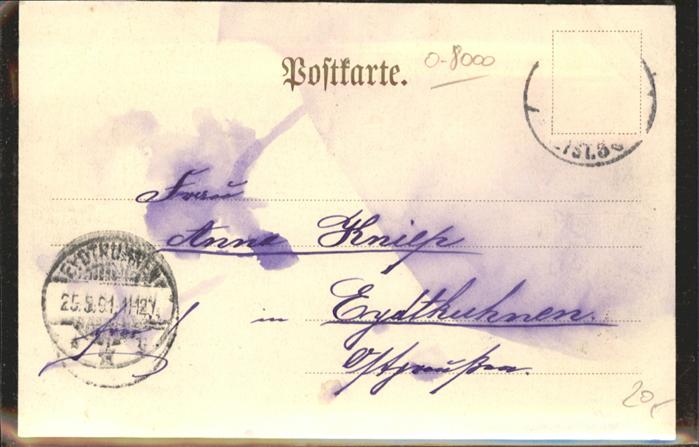 Postkarte.
0-8000
Frau
Anna Kniep
in Eydtkuhnen.
Ostpreußen.
frei
EYDTKUHNEN
25.5.01.11-12V.
20,-